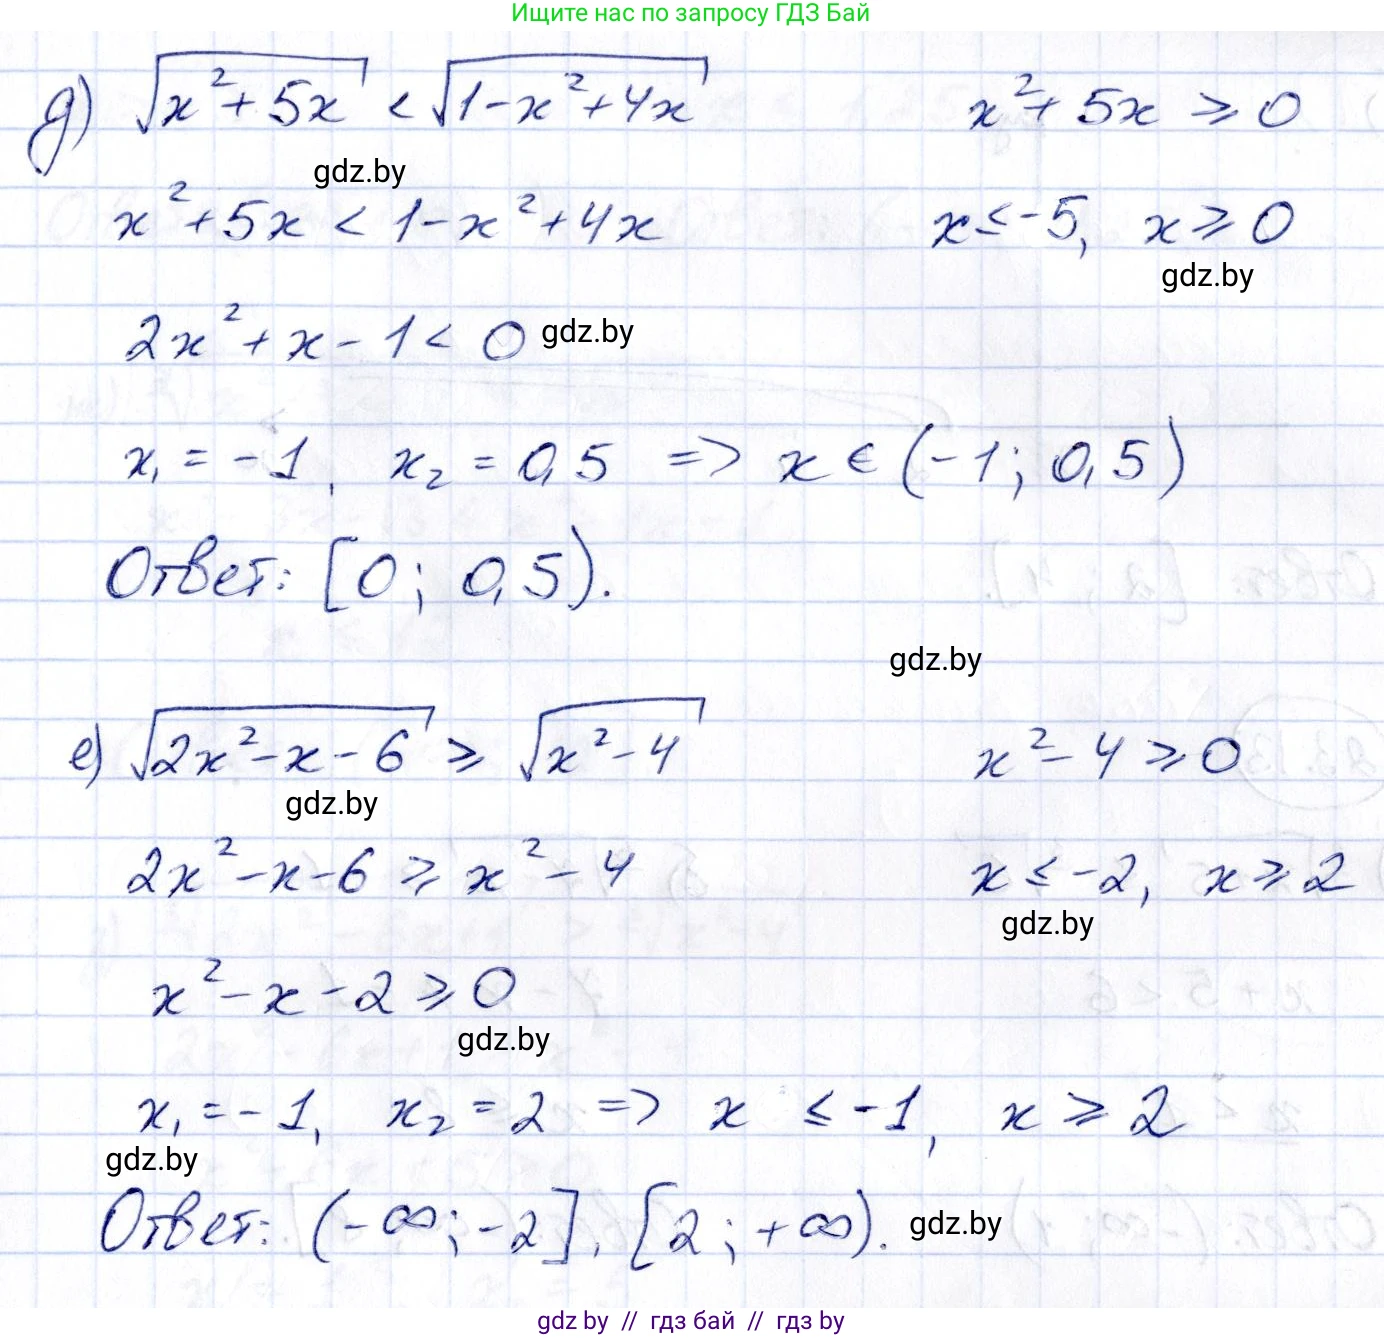 Ищите нас по запросу ГДЗ Бай
д) √(x²+5x) < √(1-x²+4x)    x²+5x ≥ 0
gdz.by
x²+5x < 1-x²+4x    x ≤ -5, x ≥ 0
gdz.by
2x²+x-1 < 0 gdz.by
x₁ = -1, x₂ = 0,5 => x ∈ (-1; 0,5)
Ответ: [0; 0,5).
gdz.by
е) √(2x²-x-6) ≥ √(x²-4)    x²-4 ≥ 0
gdz.by
2x²-x-6 ≥ x²-4    x ≤ -2, x ≥ 2
gdz.by
x²-x-2 ≥ 0
gdz.by
x₁ = -1, x₂ = 2 => x ≤ -1, x ≥ 2
gdz.by
Ответ: (-∞; -2], [2; +∞). gdz.by
gdz by // гдз бай // гдз by